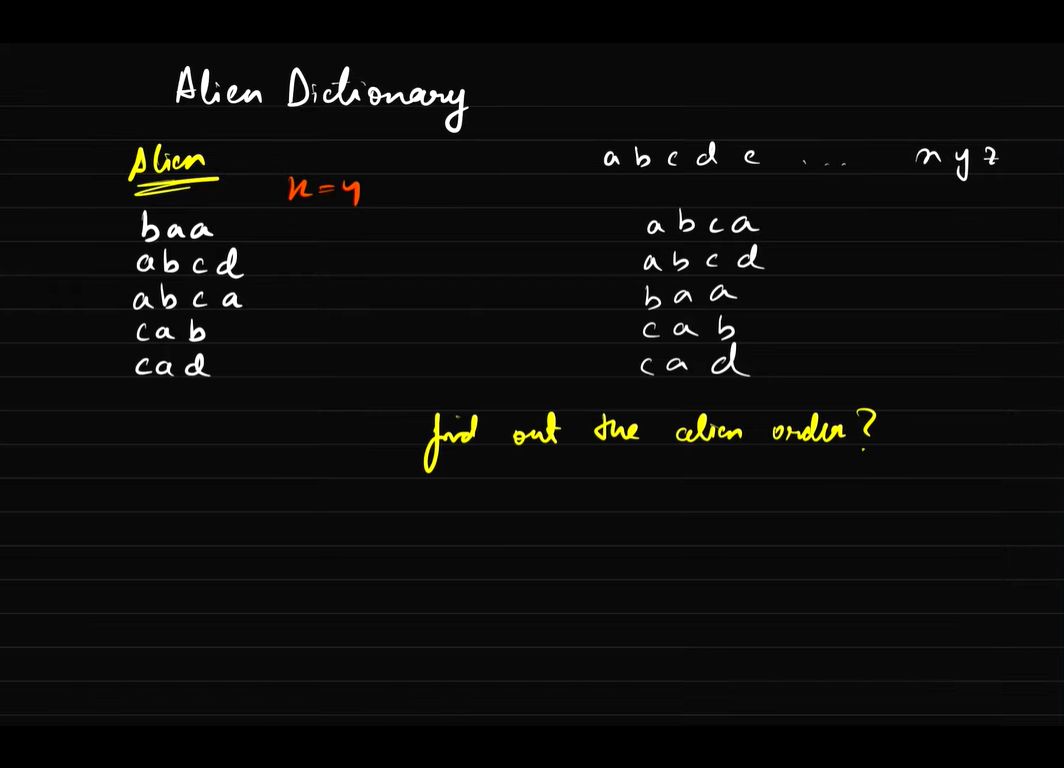 Alien Dictionary
Alien
a b c d e ... x y z
K = 4
baa
abcd
abca
cab
cad
abca
abcd
baa
cab
cad
find out the alien order?